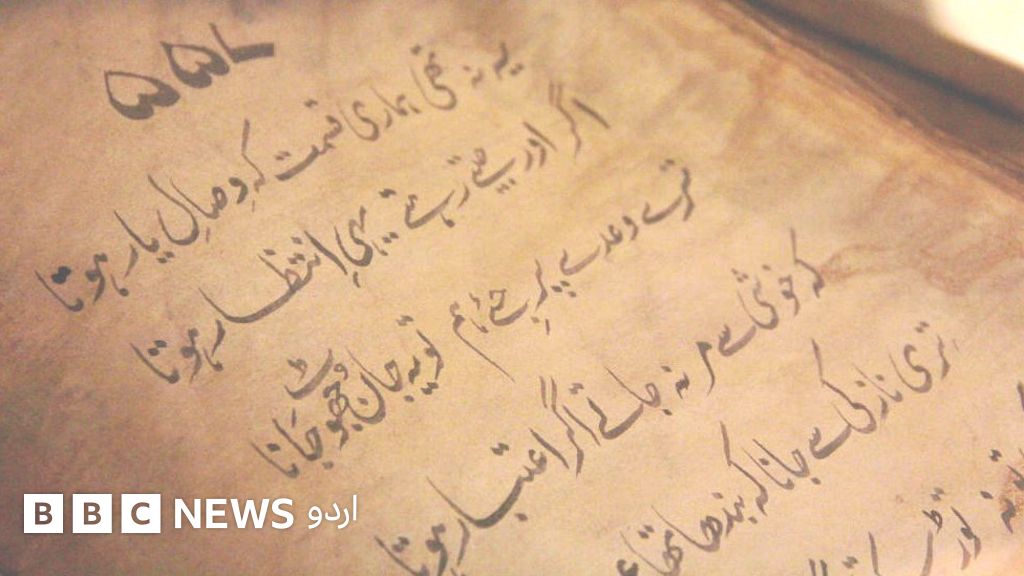 ۵۵۷
یہ نہ تھی ہماری قسمت کہ وصالِ یار ہوتا
اگر اور جیتے رہتے یہی انتظار ہوتا
ترے وعدے پر جئے ہم تو یہ جان جھوٹ جانا
کہ خوشی سے مر نہ جاتے اگر اعتبار ہوتا
تری نازکی سے جانا کہ بندھا تھا
نہ توڑ
BBC NEWS اردو